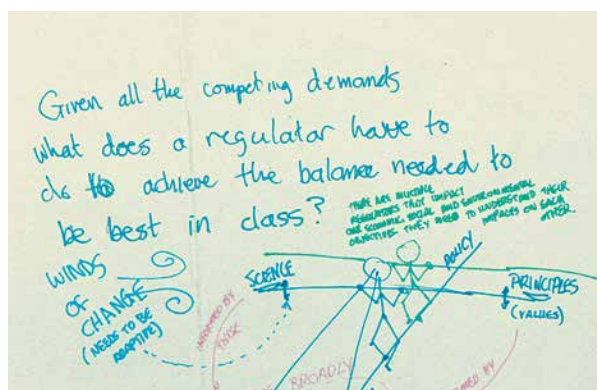 Given all the competing demands
what does a regulator have to
do to achieve the balance needed to
be best in class?
THERE ARE MULTIPLE
REGULATORS THAT IMPACT
OUR ECONOMIC, SOCIAL AND ENVIRONMENTAL
OBJECTIVES THEY NEED TO UNDERSTAND THEIR
IMPACTS ON EACH
OTHER.
WINDS
OF
CHANGE
(NEEDS TO BE
ADAPTIVE)
SCIENCE
POLICY
PRINCIPLES
(VALUES)
INFORMED BY
THESE
BROADLY
BY